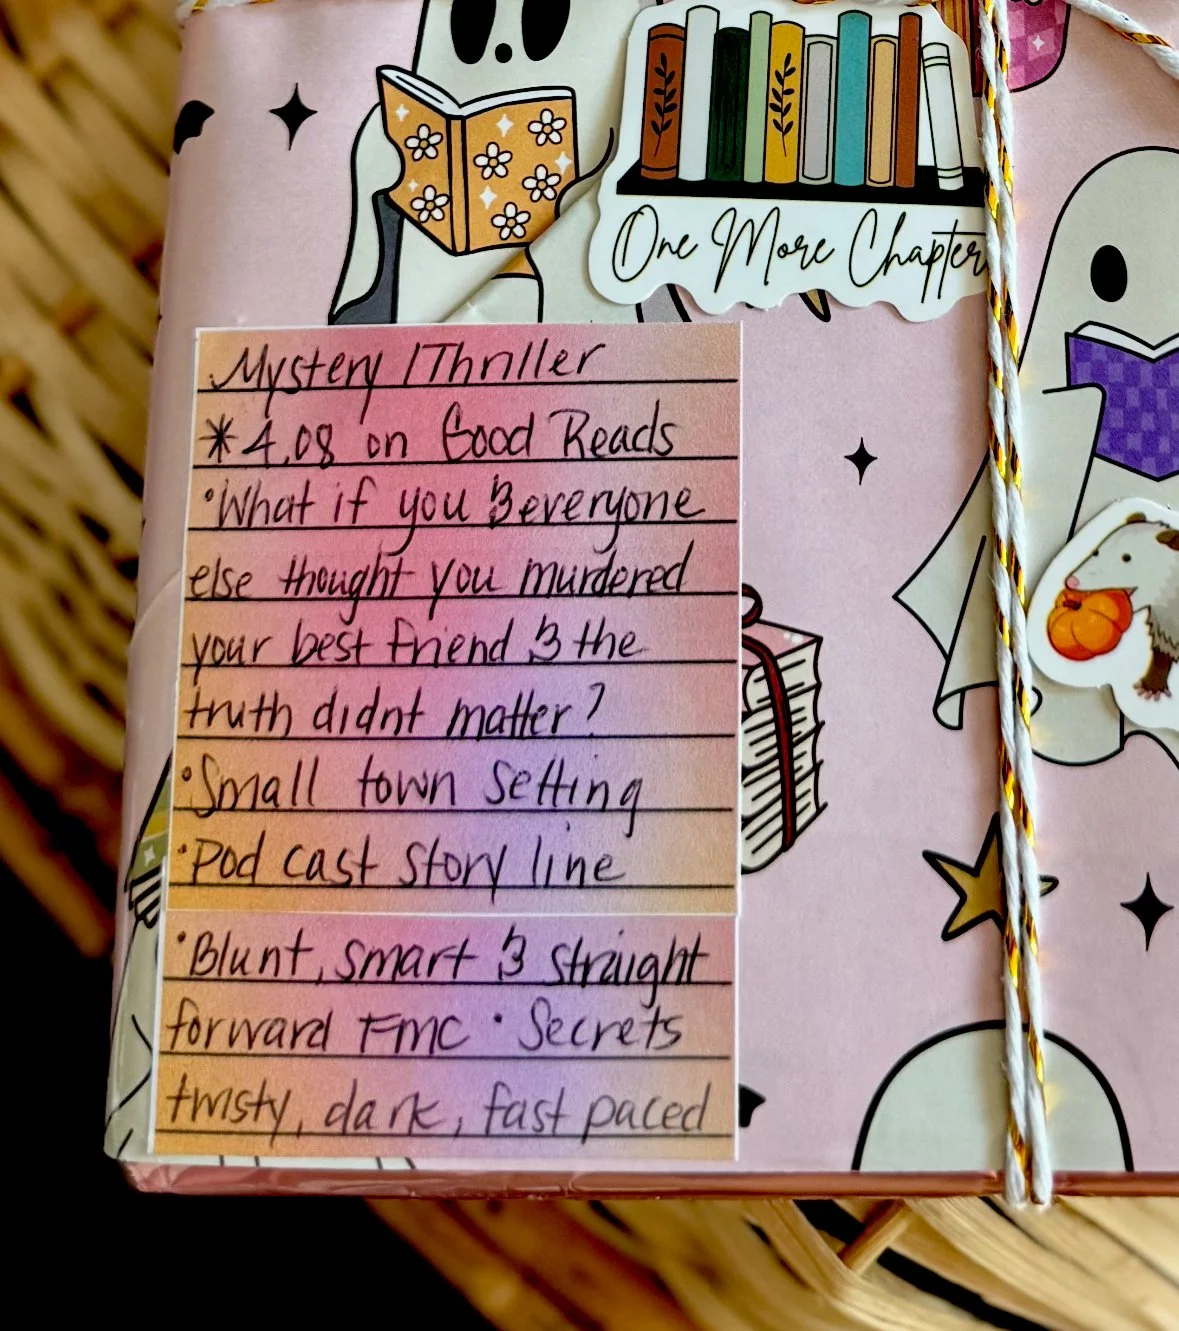 One More Chapter
Mystery / Thriller
*4.08 on Good Reads
•What if you & everyone
else thought you murdered
your best friend & the
truth didnt matter?
•Small town setting
•Pod cast story line
•Blunt, smart & straight
forward FMC • Secrets
twisty, dark, fast paced